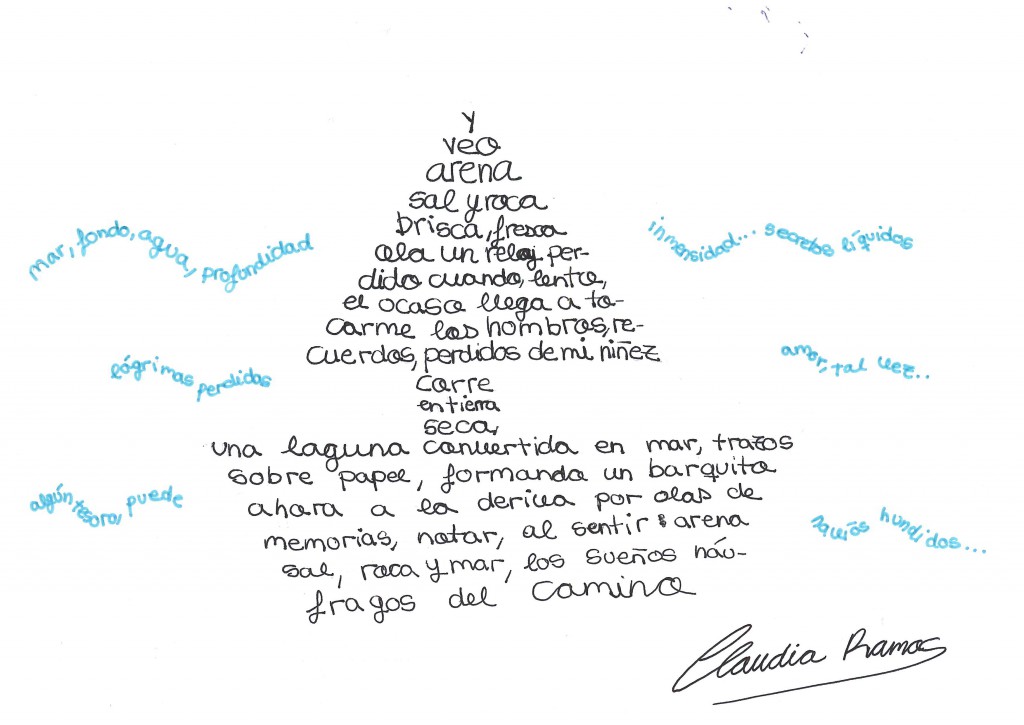 y
veo
arena
sal y roca
brisca, fresca
ola un reloj per-
dido cuando, lento,
el ocaso llega a to-
carme los hombros, re-
cuerdos, perdidos de mi niñez
corre
en tierra
seca,
una laguna convertida en mar, trazos
sobre papel, formando un barquito
ahora a la deriva por olas de
memorias, notar, al sentir arena
sal, roca y mar, los sueños náu-
fragos del camino
mar, fondo, agua, profundidad
inmensidad... secretos líquidos
lágrimas perdidas
amor, tal vez..
algún tesoro, puede
hundidos...
Claudia Ramos